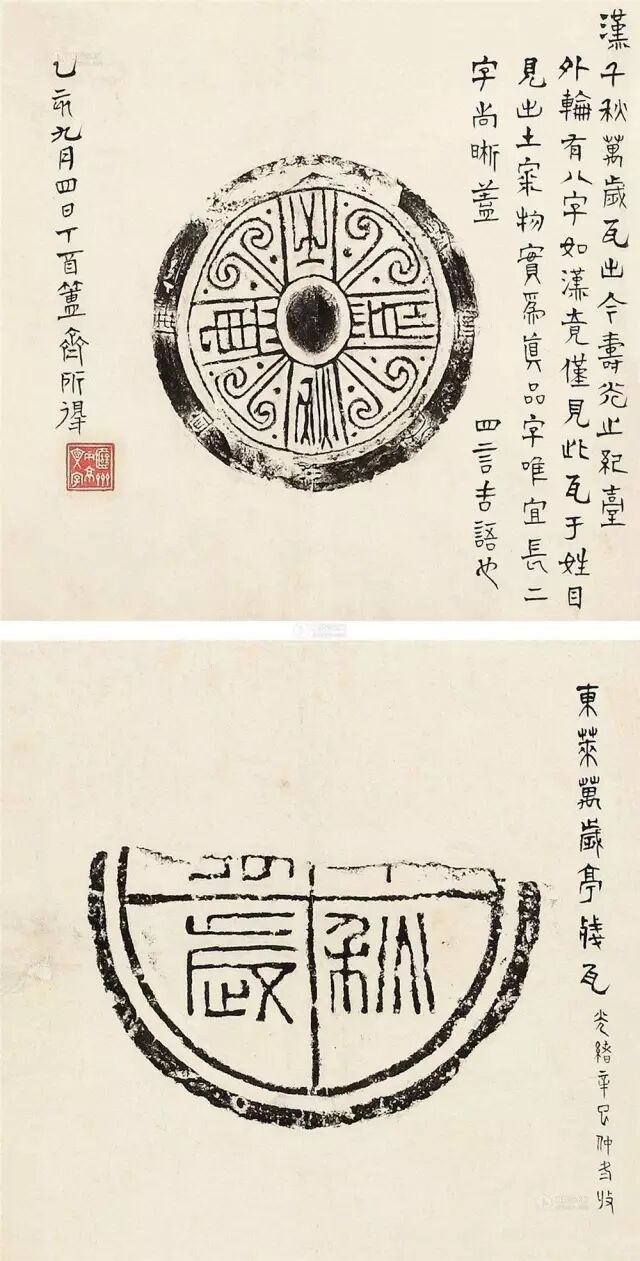 漢千秋萬歲瓦出今壽光之紀臺
外輪有八字如漢竟僅見此瓦于姓目
見出土㝡物實為真品字唯宜長二
字尚晰蓋
四言吉語也
乙亥九月四日丁酉簠齋所得
千秋萬歲
東萊萬歲亭殘瓦
光緒辛巳仲
收
秋歲